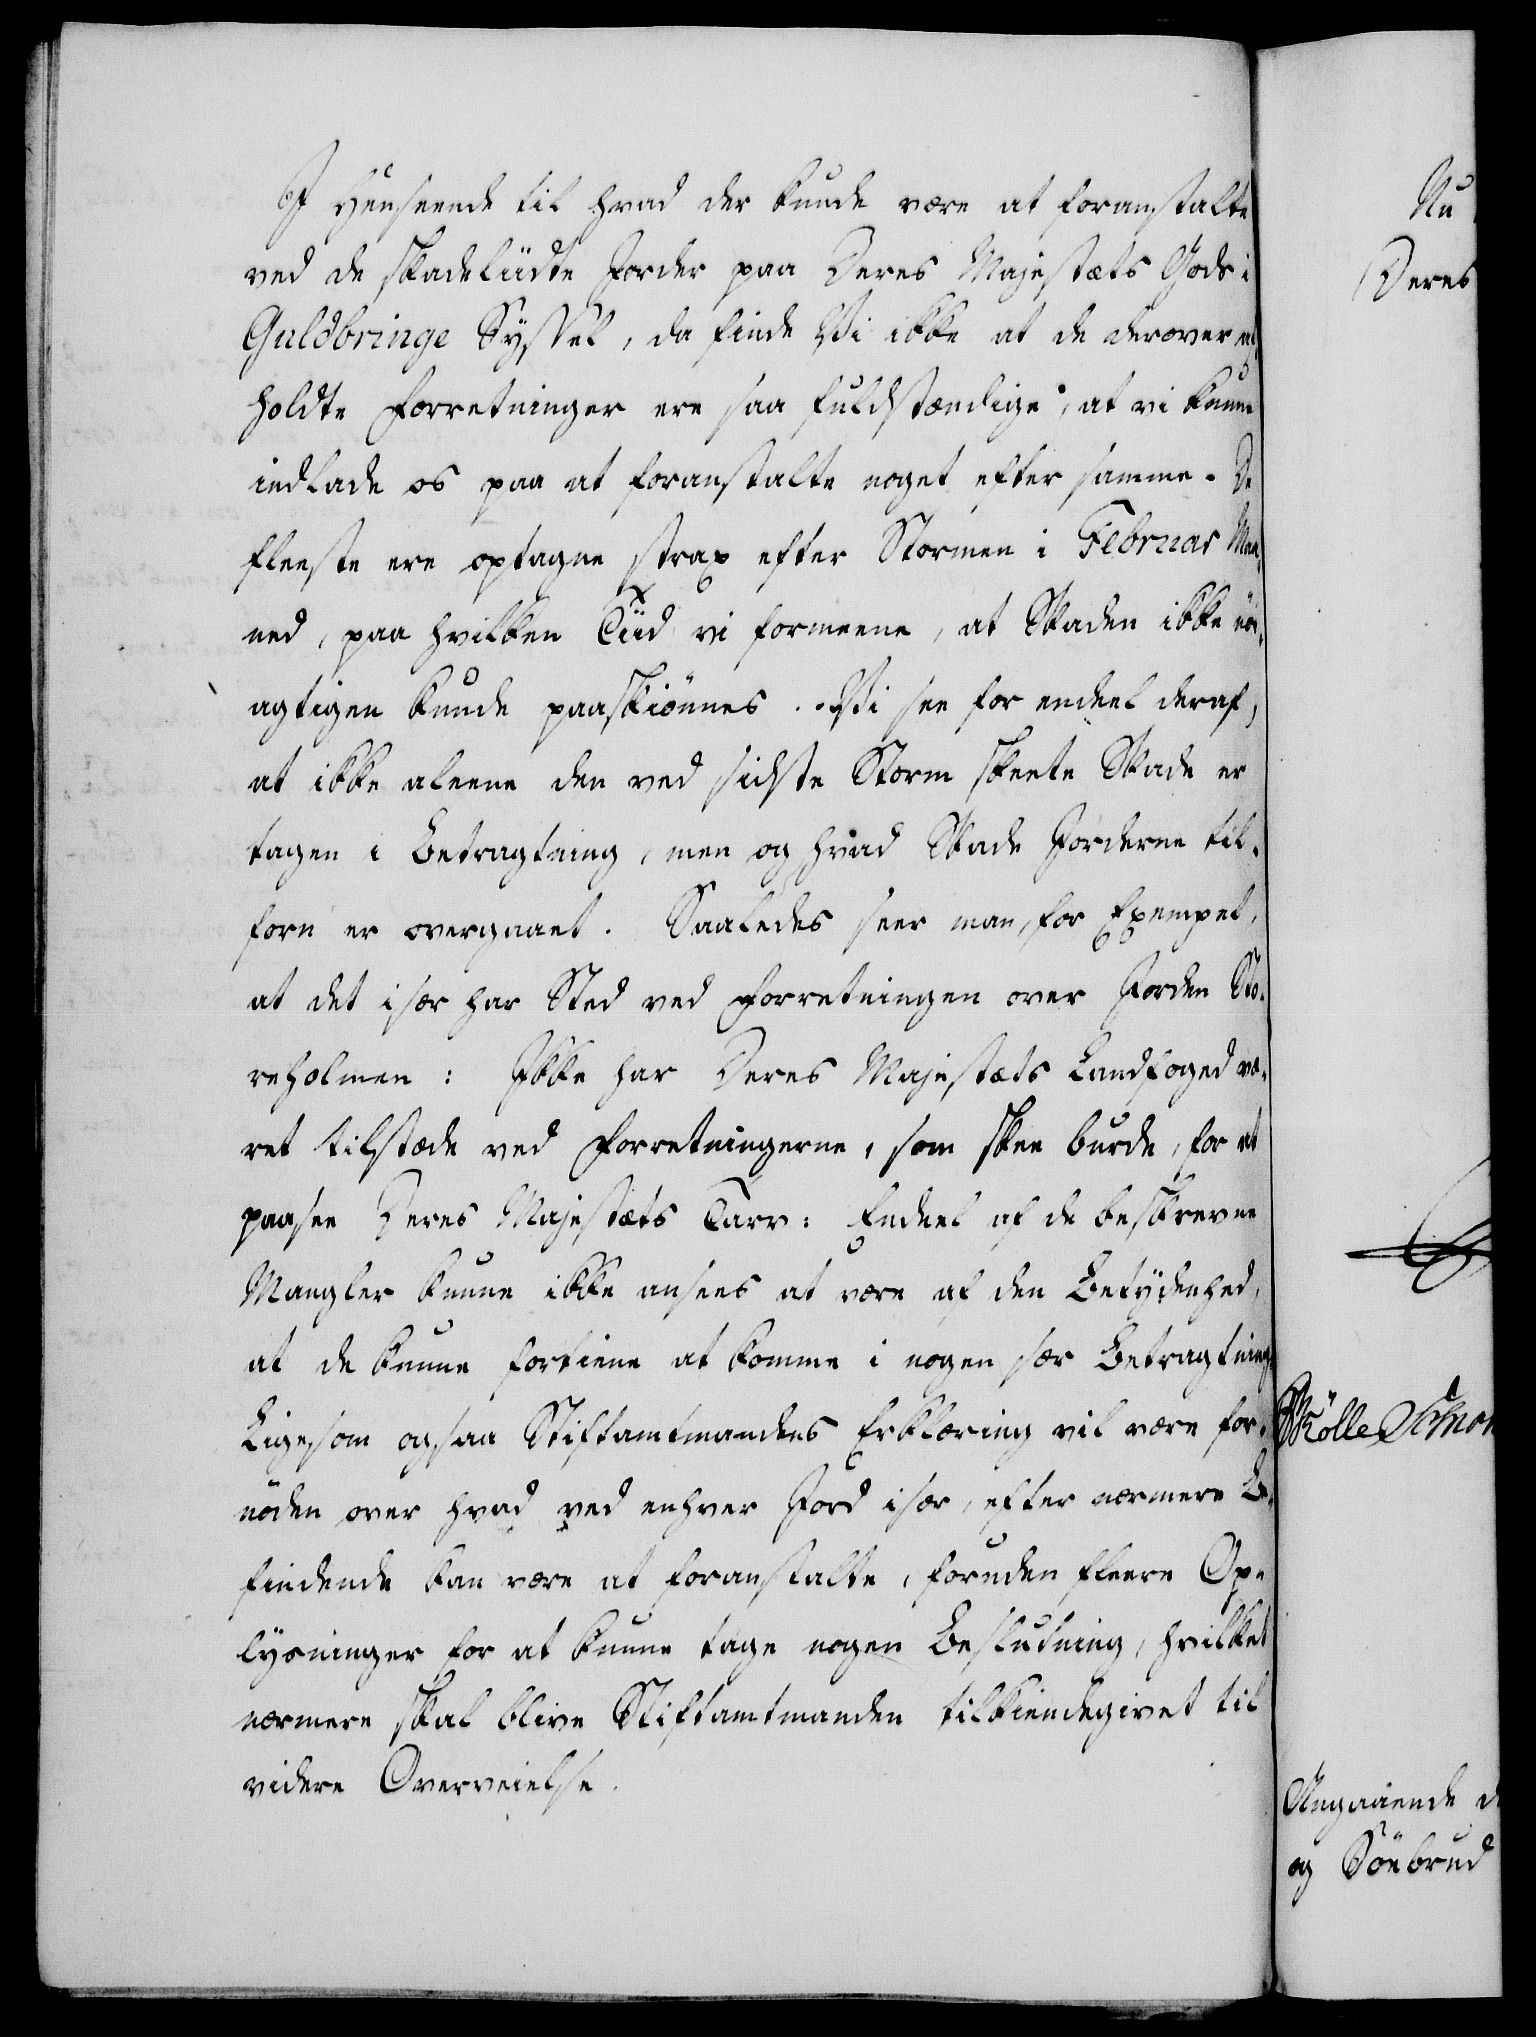 I Henseende til hvad der kunde være at foranstalte
ved de skadeliidte Jorder paa Deres Majestæts Gods i
Guldbringe Syssel, da finde Vi ikke at de derover af
holdte Forretninger ere saa fuldstændige, at vi kunne
indlade os paa at foranstalte noget efter samme. De
fleeste ere optagne strax efter Stormen i Februar Maa
ned, paa hvilken Tiid vi formeene, at Skaden ikke nøi
agtigen kunde paaskiönnes. Vi see for endeel deraf,
at ikke aleene den ved sidste Storm skeete Skade er
tagen i Betragtning, men og hvad Skade Jorderne til-
forn er overgaaet. Saaledes seer man, for Exempel,
at det især har Sted ved Forretningen over Jorden Sto-
reholmen: Ikke har Deres Majestæts Landfoged væ-
ret tilstæde ved Forretningerne, som skee burde, for at
paasee Deres Majestæts Tarv: Endeel af de beskrevne
Mangler kunne ikke ansees at være af den Betydenhed,
at de kunne fortiene at komme i nogen sær Betragtning
Ligesom ogsaa Stiftamtmandens Erklæring vil være for-
nöden over hvad ved enhver Jord især, efter nærmere Be-
findende kan være at foranstalte, foruden fleere Op-
lysninger for at kunne tage nogen Beslutning, hvilket
nærmere skal blive Stiftamtmanden tilkiendegivet til
videre Overveielse.
Nu
Deres
Angaaende d
og Söebrud